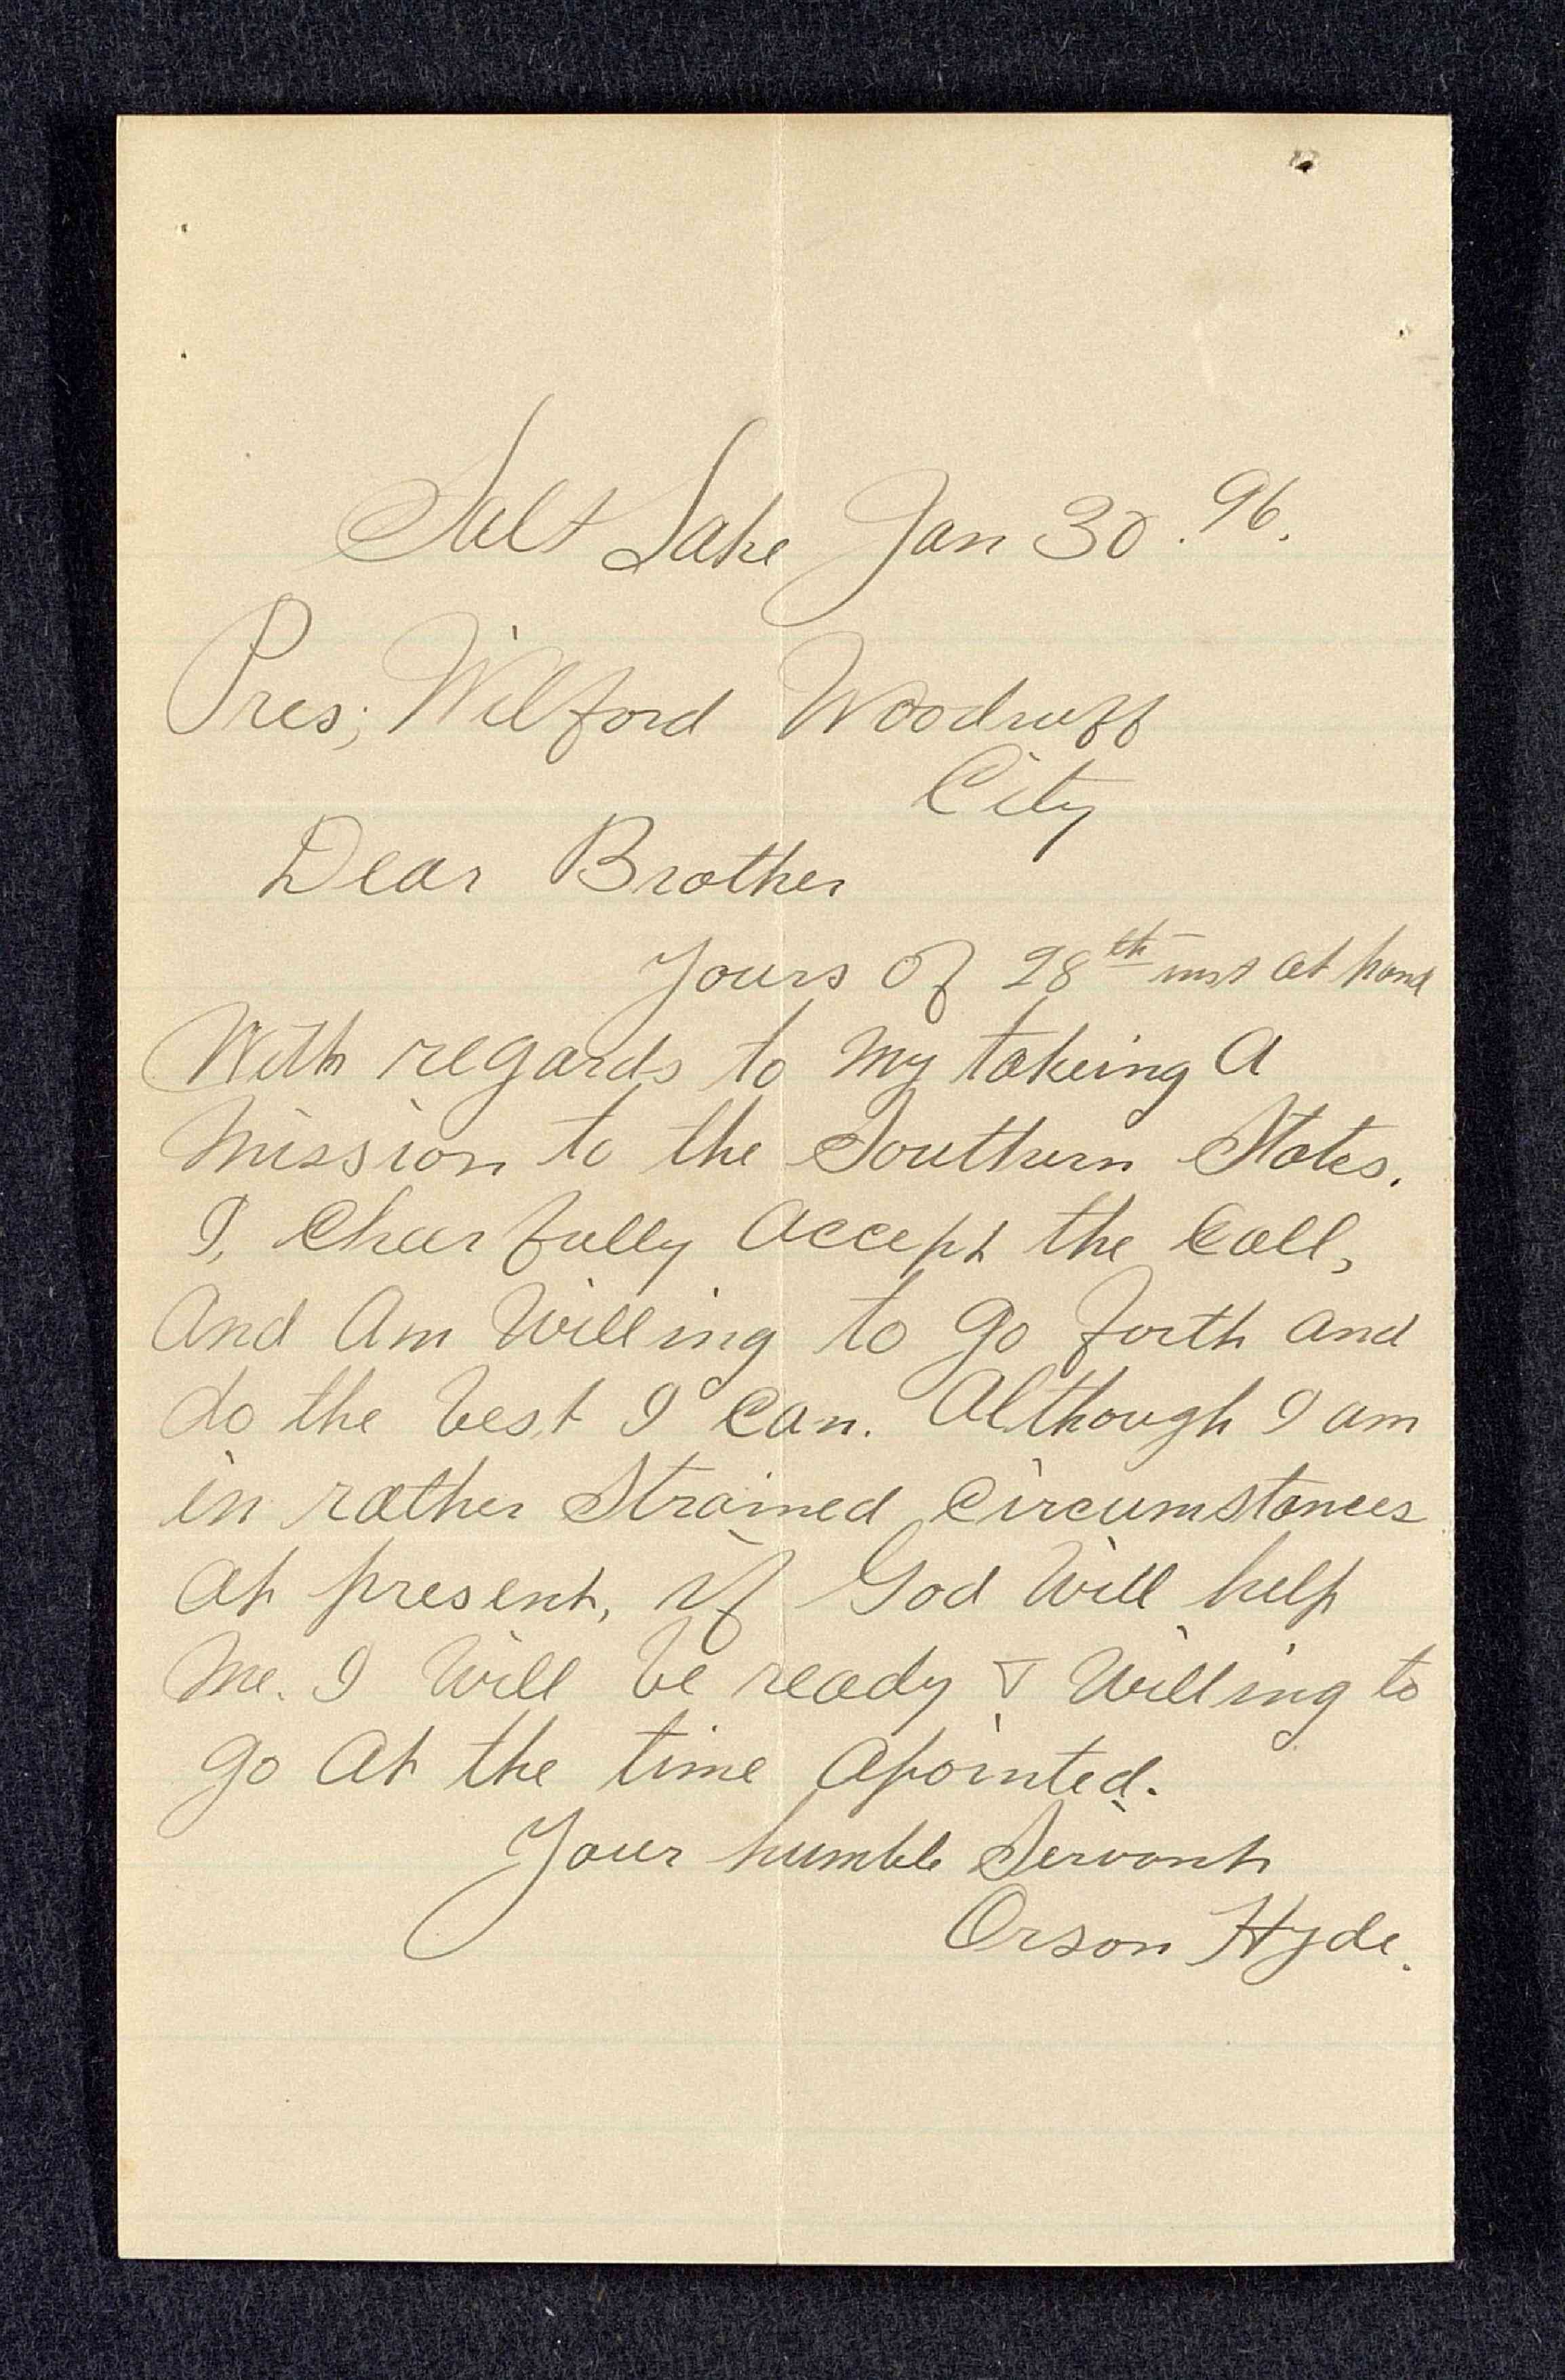 Salt Lake Jan 30. 96.
Pres; Wilford Woodruff
City
Dear Brother
Yours of 28th inst at hand
With regards to my takeing a
mission to the Southern States.
I, Chearfully accept the Call,
and am Willing to go forth and
do the best I can. Although I am
in rather Strained Circumstances
at present, if God Will help
me. I Will be ready & Willing to
go at the time apointed.
Your humble Servant
Orson Hyde.